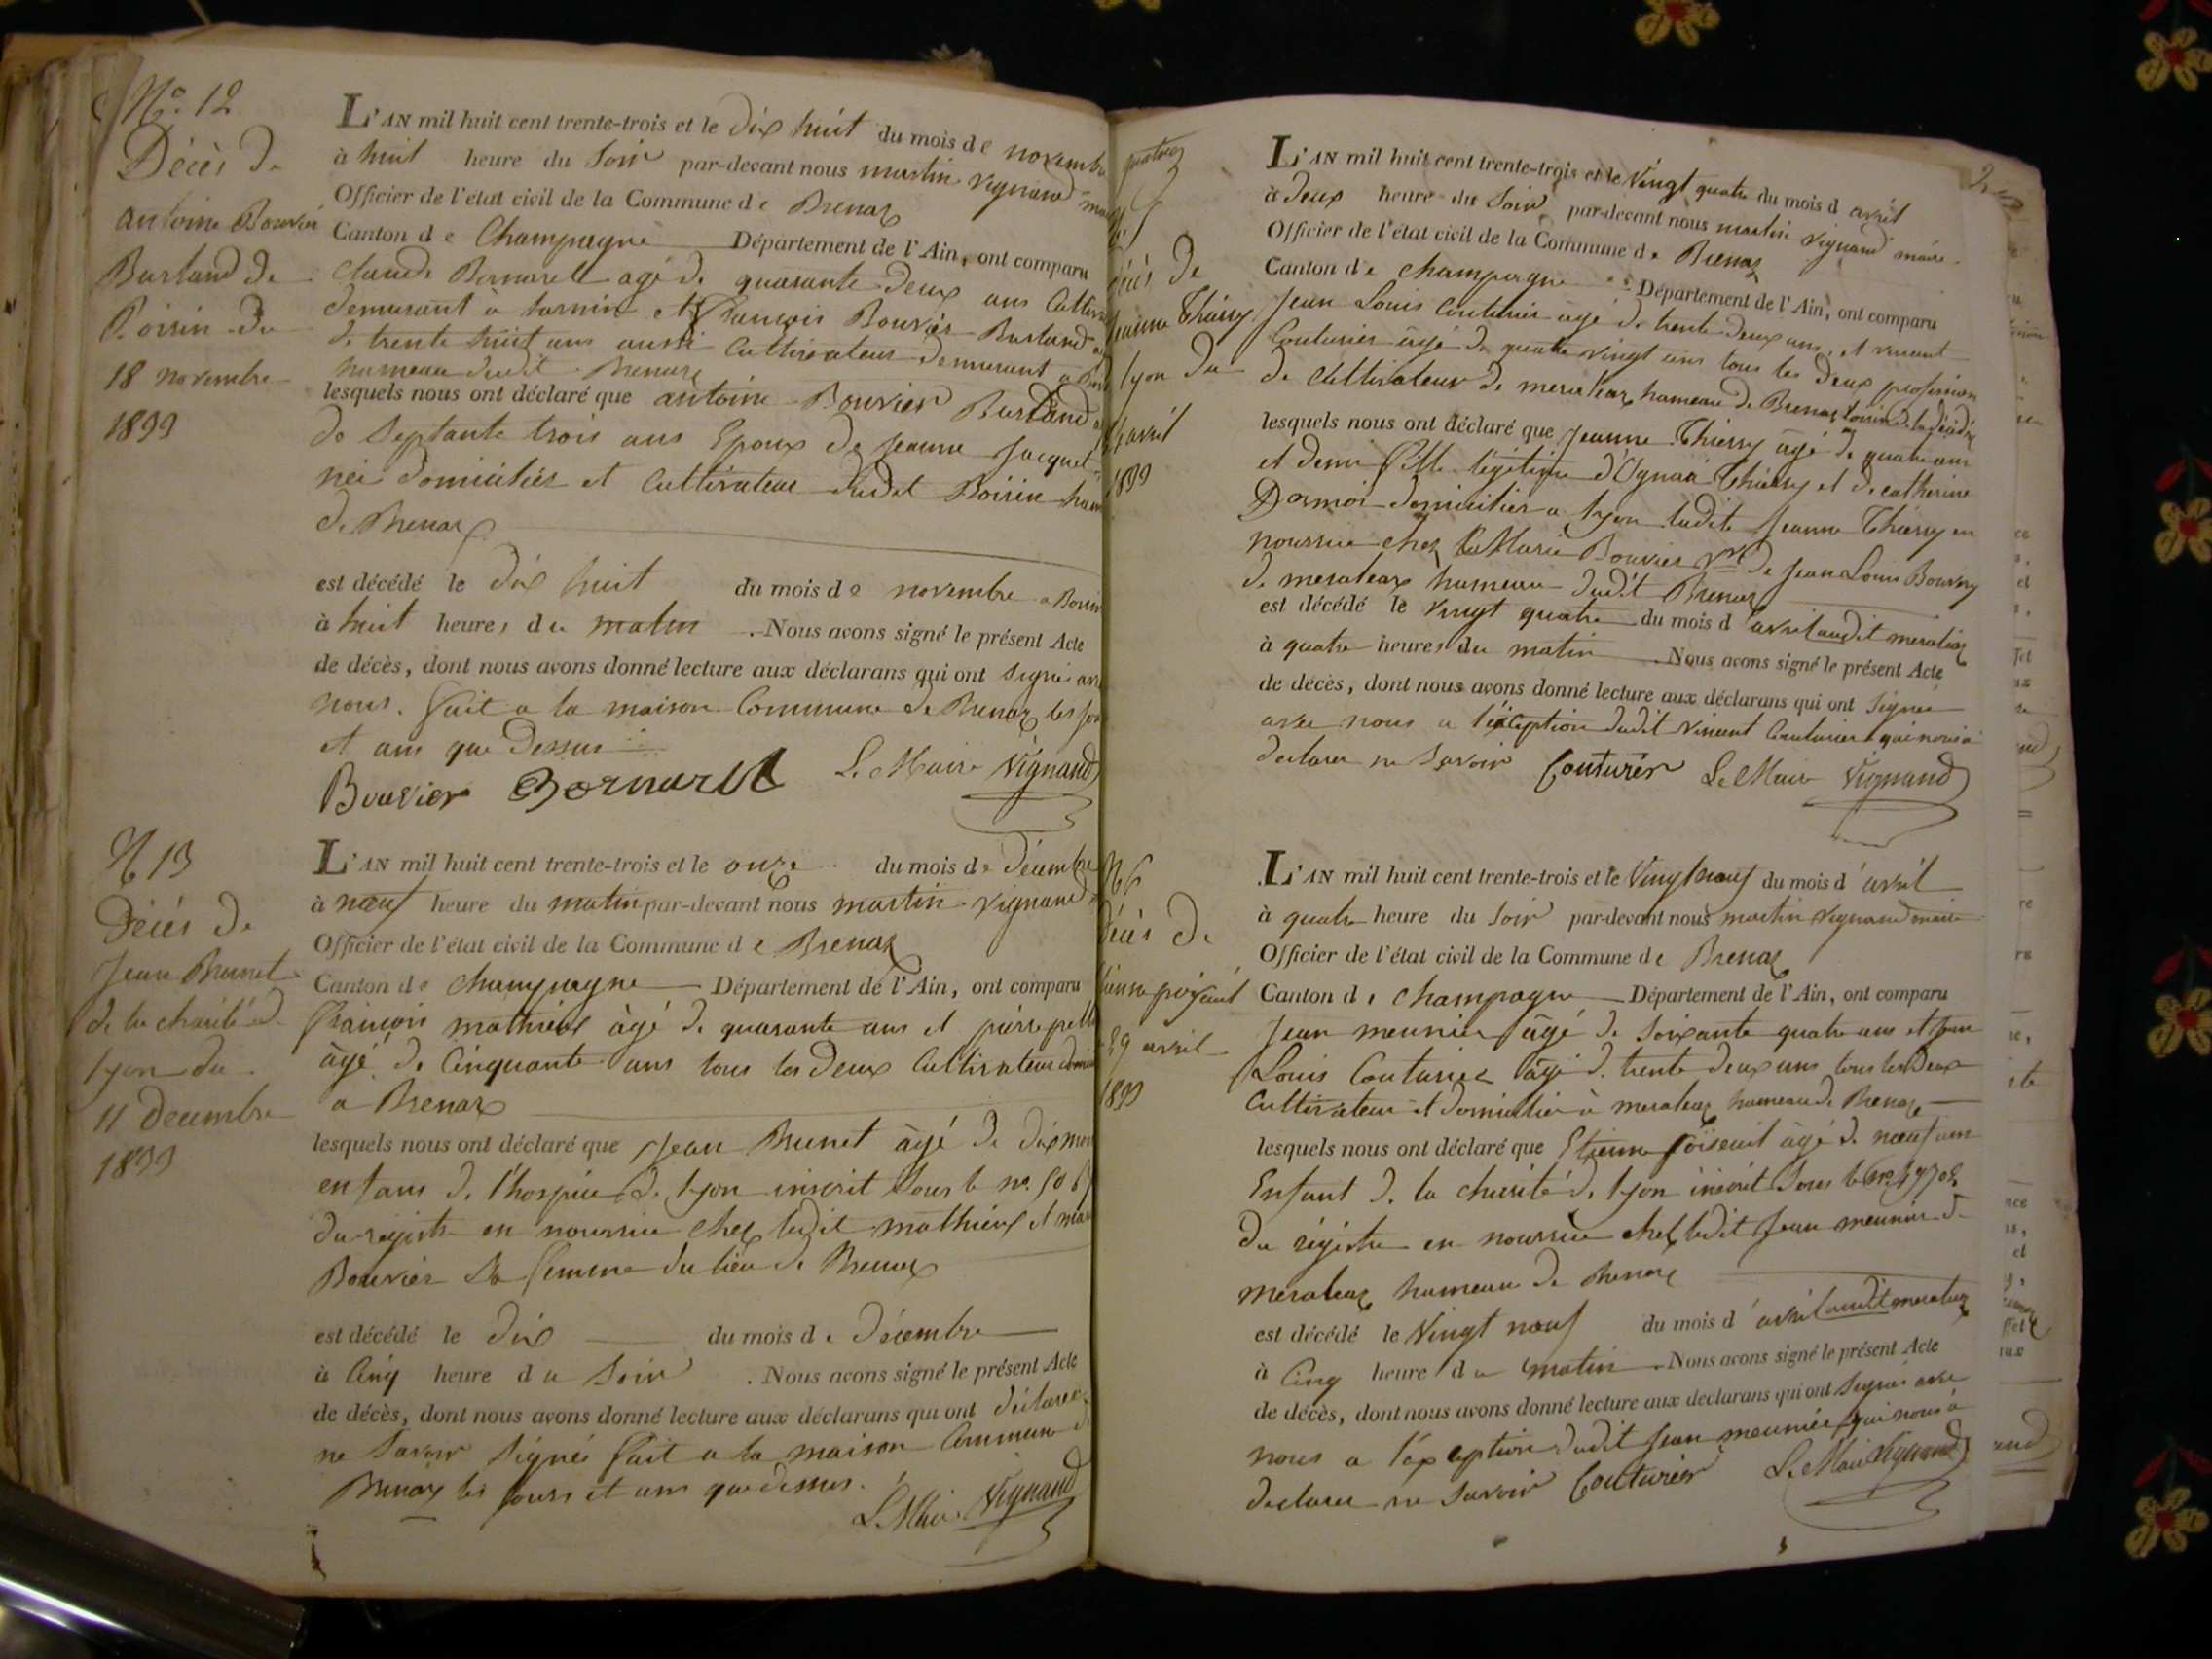 No. 12
Décès de
antoine Bouvier
Burland de
Poisin du
18 novembre
1833
L'AN mil huit cent trente-trois et le dix huit du mois de novembre
à huit heure du Soir par-devant nous martin vignand
Officier de l'état civil de la Commune de Brenaz
Canton de Champagne Département de l'Ain, ont comparu
Claude Bernard agé de quarante deux ans
demeurant à et francois Bouvier Burland
de trente huit ans aussi Cultivateur demeurant
hameau dudit Brenaz
lesquels nous ont déclaré que antoine Bouvier Burland
de Septante trois ans Epoux de Jeanne
domiciliés et Cultivateur dudit Poisin
de Brenaz
est décédé le dix huit du mois de novembre a
à huit heures du matin . Nous avons signé le présent Acte
de décès, dont nous avons donné lecture aux déclarans qui ont signé
nous. fait a la maison Commune de Brenaz les
et ans que Dessus
Bouvier Bernard Le Maire Vignand
N 13
Décès de
Jean Brunet
de la charité de
lyon du
11 decembre
1833
L'AN mil huit cent trente-trois et le onze du mois de Décembre
à neuf heure du matin par-devant nous martin vignand
Officier de l'état civil de la Commune de Brenaz
Canton de champagne Département de l'Ain, ont comparu
françois mathieux âgé de quarante ans et pierre
âgé de Cinquante ans tous les deux Cultivateurs
a Brenaz
lesquels nous ont déclaré que Jean Brunet âgé de dix
enfans de l'hospice de lyon inscrit Sous le no.
du registre en nourrice chez ledit mathieux et
Bouvier Sa femme du lieu de Brenaz
est décédé le dix du mois de Décembre
à Cinq heure du Soir . Nous avons signé le présent Acte
de décès, dont nous avons donné lecture aux déclarans qui ont déclarer
ne Savoir Signé fait a la maison Commune
Brenaz les jours et ans que dessus.
Le Maire Vignand
décès de
Jeanne Thiery
lyon du
avril
1833
L'AN mil huit cent trente-trois et le Vingt quatre du mois d avril
à deux heure du Soir par-devant nous martin vignand maire
Officier de l'état civil de la Commune de Brenaz
Canton de champagne Département de l'Ain, ont comparu
Jean Louis Couturier âgé de trente deux ans, et vincent
Couturier âgé de quatre vingt ans tous les deux profession
de Cultivateur de meraleaz hameau de Brenaz
lesquels nous ont déclaré que Jeanne Thiery âgé de quatre ans
et demi fille légitime d' Thiery et de catherine
domicilier a lyon ladite Jeanne Thiery en
nourrice chez la Marie Bouvier de Jean Louis
de meraleaz hameau dudit Brenaz
est décédé le vingt quatre du mois d'avril audit meraleaz
à quatre heures du matin . Nous avons signé le présent Acte
de décès, dont nous avons donné lecture aux déclarans qui ont Signé
avec nous a l'exception dudit vincent Couturier qui nous a
declarer ne Savoir Couturier Le Maire Vignand
N 6
Décès de
29 avril
1833
L'AN mil huit cent trente-trois et le Vingt neuf du mois d'avril
à quatre heure du Soir par-devant nous martin vignand maire
Officier de l'état civil de la Commune de Brenaz
Canton de Champagne Département de l'Ain, ont comparu
Jean meunier âgé de Soixante quatre ans et Jean
Louis Couturier âgé de trente deux ans tous les Deux
Cultivateur et domicilier à meraleaz hameau de Brenaz
lesquels nous ont déclaré que Etienne âgé de neuf ans
Enfant de la charité de lyon inscrit Sous le no.
du régistre en nourrice chez ledit Jean meunier de
meraleaz hameau de Brenaz
est décédé le Vingt neuf du mois d'avril audit meraleaz
à Cinq heure du matin . Nous avons signé le présent Acte
de décès, dont nous avons donné lecture aux declarans qui ont Signé avec
nous a l'exception dudit Jean meunier qui nous a
declarer ne Savoir Couturier Le Maire Vignand